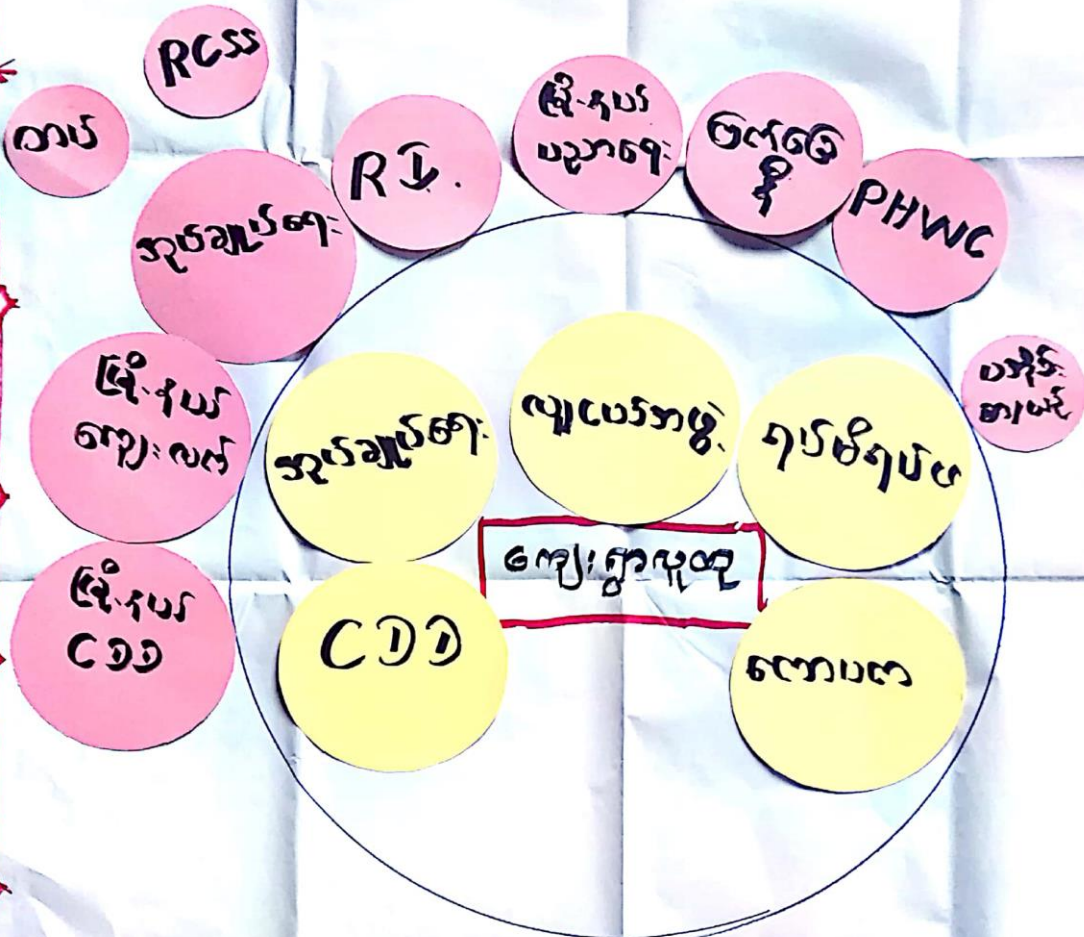 RCSS
တပ်
အုပ်ချုပ်ရေး
RI.
မြို့နယ်
ပညာရေး
မြက်မြေ
စို
PHWC
ပအိုဝ်း
စာ/ယဉ်
မြို့နယ်
ကျေးလက်
မြို့နယ်
CDD
အုပ်ချုပ်ရေး
လူငယ်အဖွဲ့
ရပ်မိရပ်ဖ
ကျေးရွာလူထု
CDD
ကော်ပက